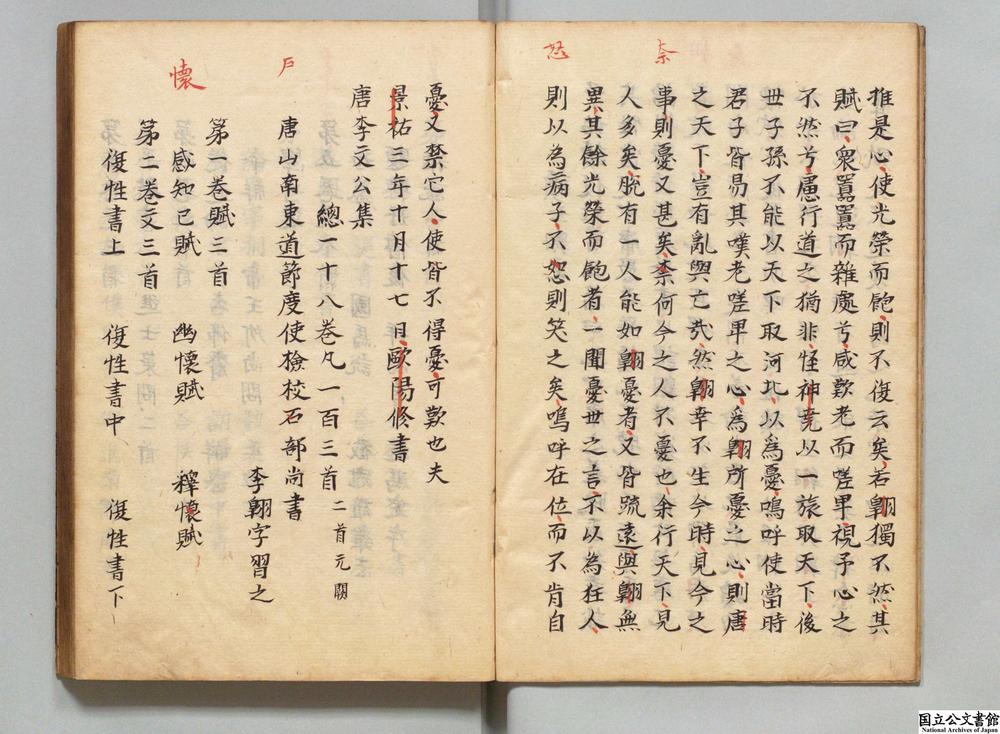 奈
怒
推是心使光榮而飽則不復云矣若翱獨不然其
賦曰衆囂囂而雜處兮咸歎老而嗟卑視予心之
不然兮慮行道之猶非怪神堯以一旅取天下後
世子孫不能以天下取河北以為憂嗚呼使當時
君子皆易其嘆老嗟卑之心為翱所憂之心則唐
之天下豈有亂與亡哉然翱幸不生今時見今之
事則憂又甚矣柰何今之人不憂也余行天下見
人多矣脫有一人能如翱憂者又皆疏遠與翱無
異其餘光榮而飽者一聞憂世之言不以為狂人
則以為病子不恕則笑之矣嗚呼在位而不肯自
戶
懷
憂又禁它人使皆不得憂可歎也夫
景祐三年十月十七日歐陽修書
唐李文公集
總一十八卷凡一百三首 二首元闕
唐山南東道節度使檢校石部尚書
李翱字習之
第一卷賦三首
感知已賦 幽懷賦 釋懷賦
第二卷文三首
復性書上 復性書中 復性書下
国立公文書館
National Archives of Japan